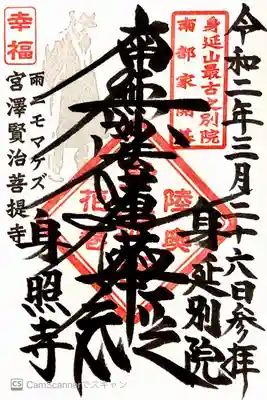 令和二年三月二十六日参拝
身延山最古之別院
南部家開基
身延別院
南無妙法蓮華経
陸奥
花巻
幸福
雨ニモマケズ
宮澤賢治菩提寺
身照寺
CS CamScannerでスキャン